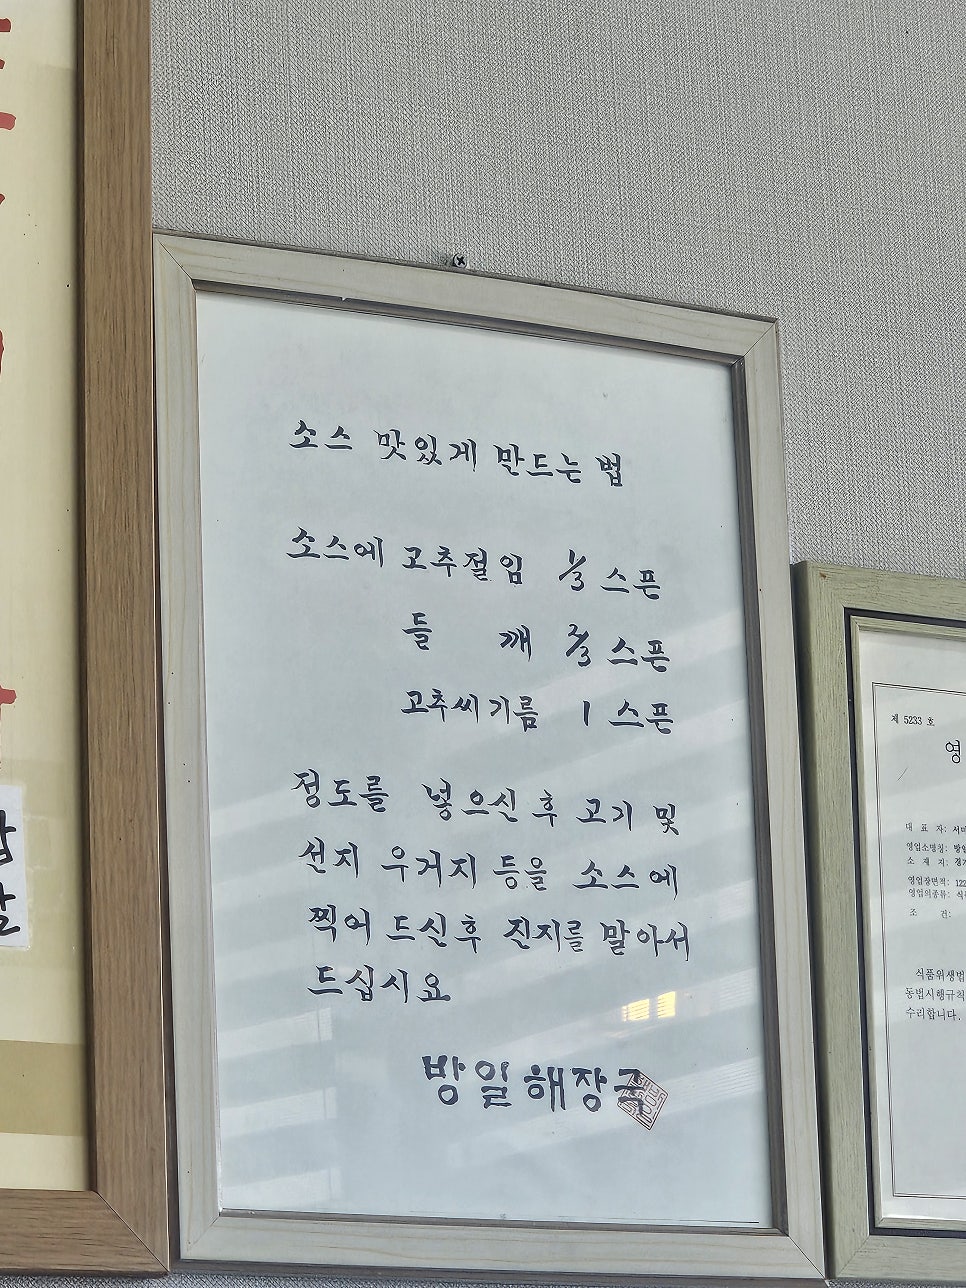 소스 맛있게 만드는 법
소스에 고추절임 1/3 스픈
들 깨 2/3 스픈
고추씨기름 1 스픈
정도를 넣으신 후 고기 및
선지 우거지 등을 소스에
찍어 드신후 진지를 말아서
드십시요
방일해장국
제 5233 호
영
대 표 자: 서
영업소명칭: 방일
소 재 지: 경기
영업장면적: 122
영업의종류: 식
조 건:
식품위생법
동법시행규칙
수리합니다.